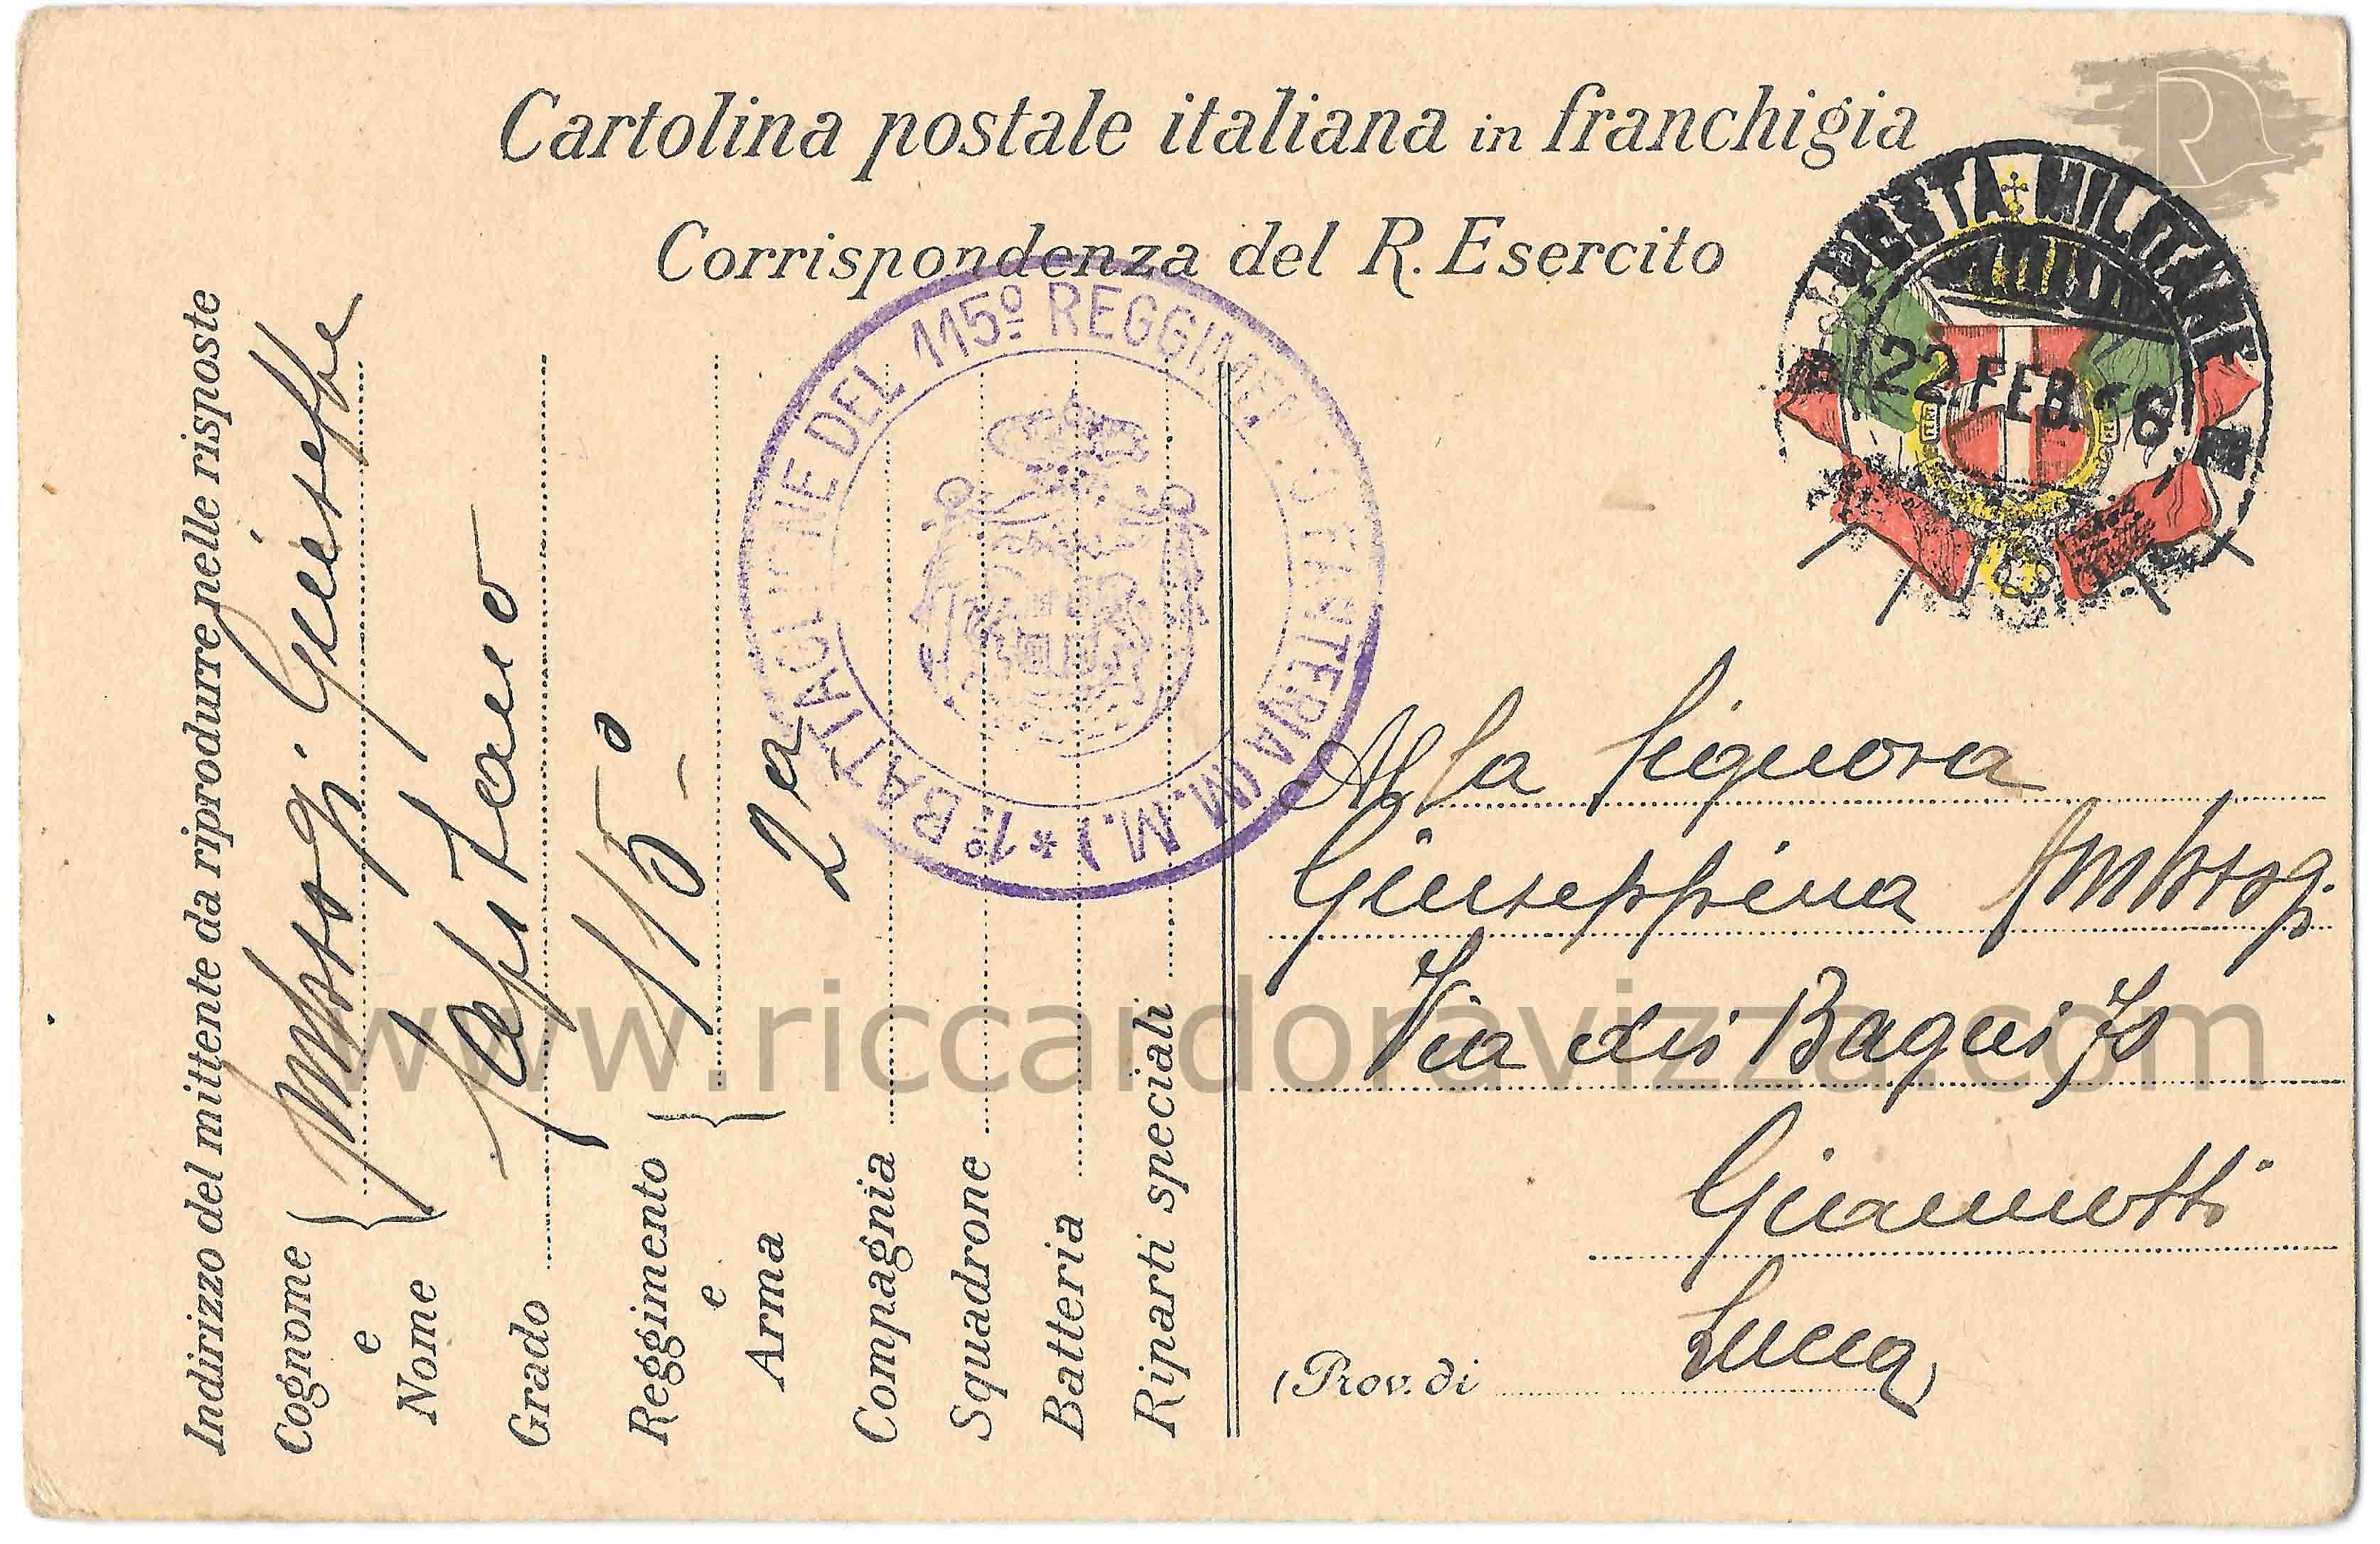 Cartolina postale italiana in franchigia
Corrispondenza del R. Esercito
POSTA MILITARE
22 FEB. 16
1º BATTAGLIONE DEL 115º REGGIMENTO FANTERIA (M.M.) *
Indirizzo del mittente da riprodurre nelle risposte
Cognome e Nome Giuseppe
Grado Capitano
Reggimento e Arma 115º
Compagnia 2a
Squadrone
Batteria
Riparti speciali
Alla Signora
Giuseppina Ambrog.
Via dei Bagni
Giannotti
(Prov. di Lucca)
www.riccardoravizza.com
R